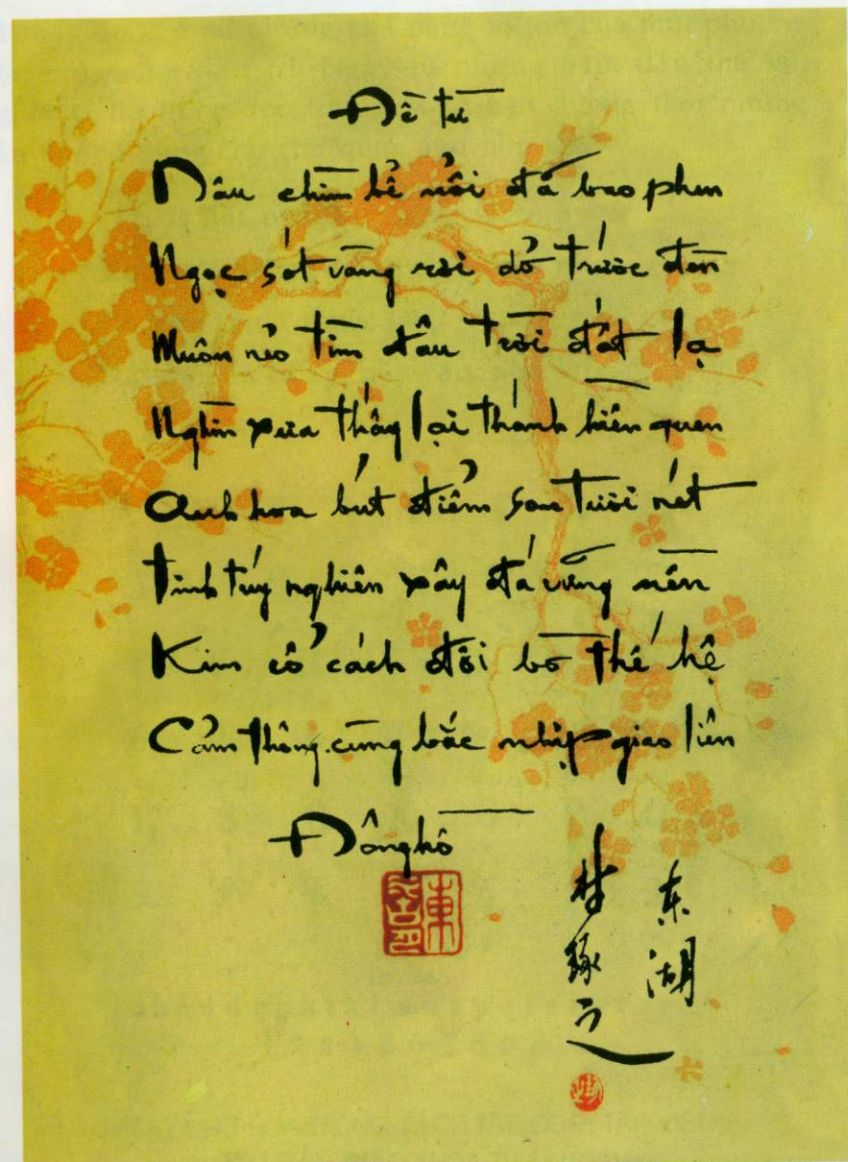 Đề từ
Dâu chìm bể nổi đã bao phen
Ngọc sót vàng rơi dở trước đèn
Muôn nẻo tìm đâu trời đất lạ
Nghìn xưa thấy lại thánh hiền quen
Anh hoa bút điểm son tươi nét
Tinh túy nghiên xây đá vững nền
Kim cổ cách đôi bờ thế hệ
Cảm thông cùng bắc nhịp giao liên
Đông hồ
东湖
林琢之
東